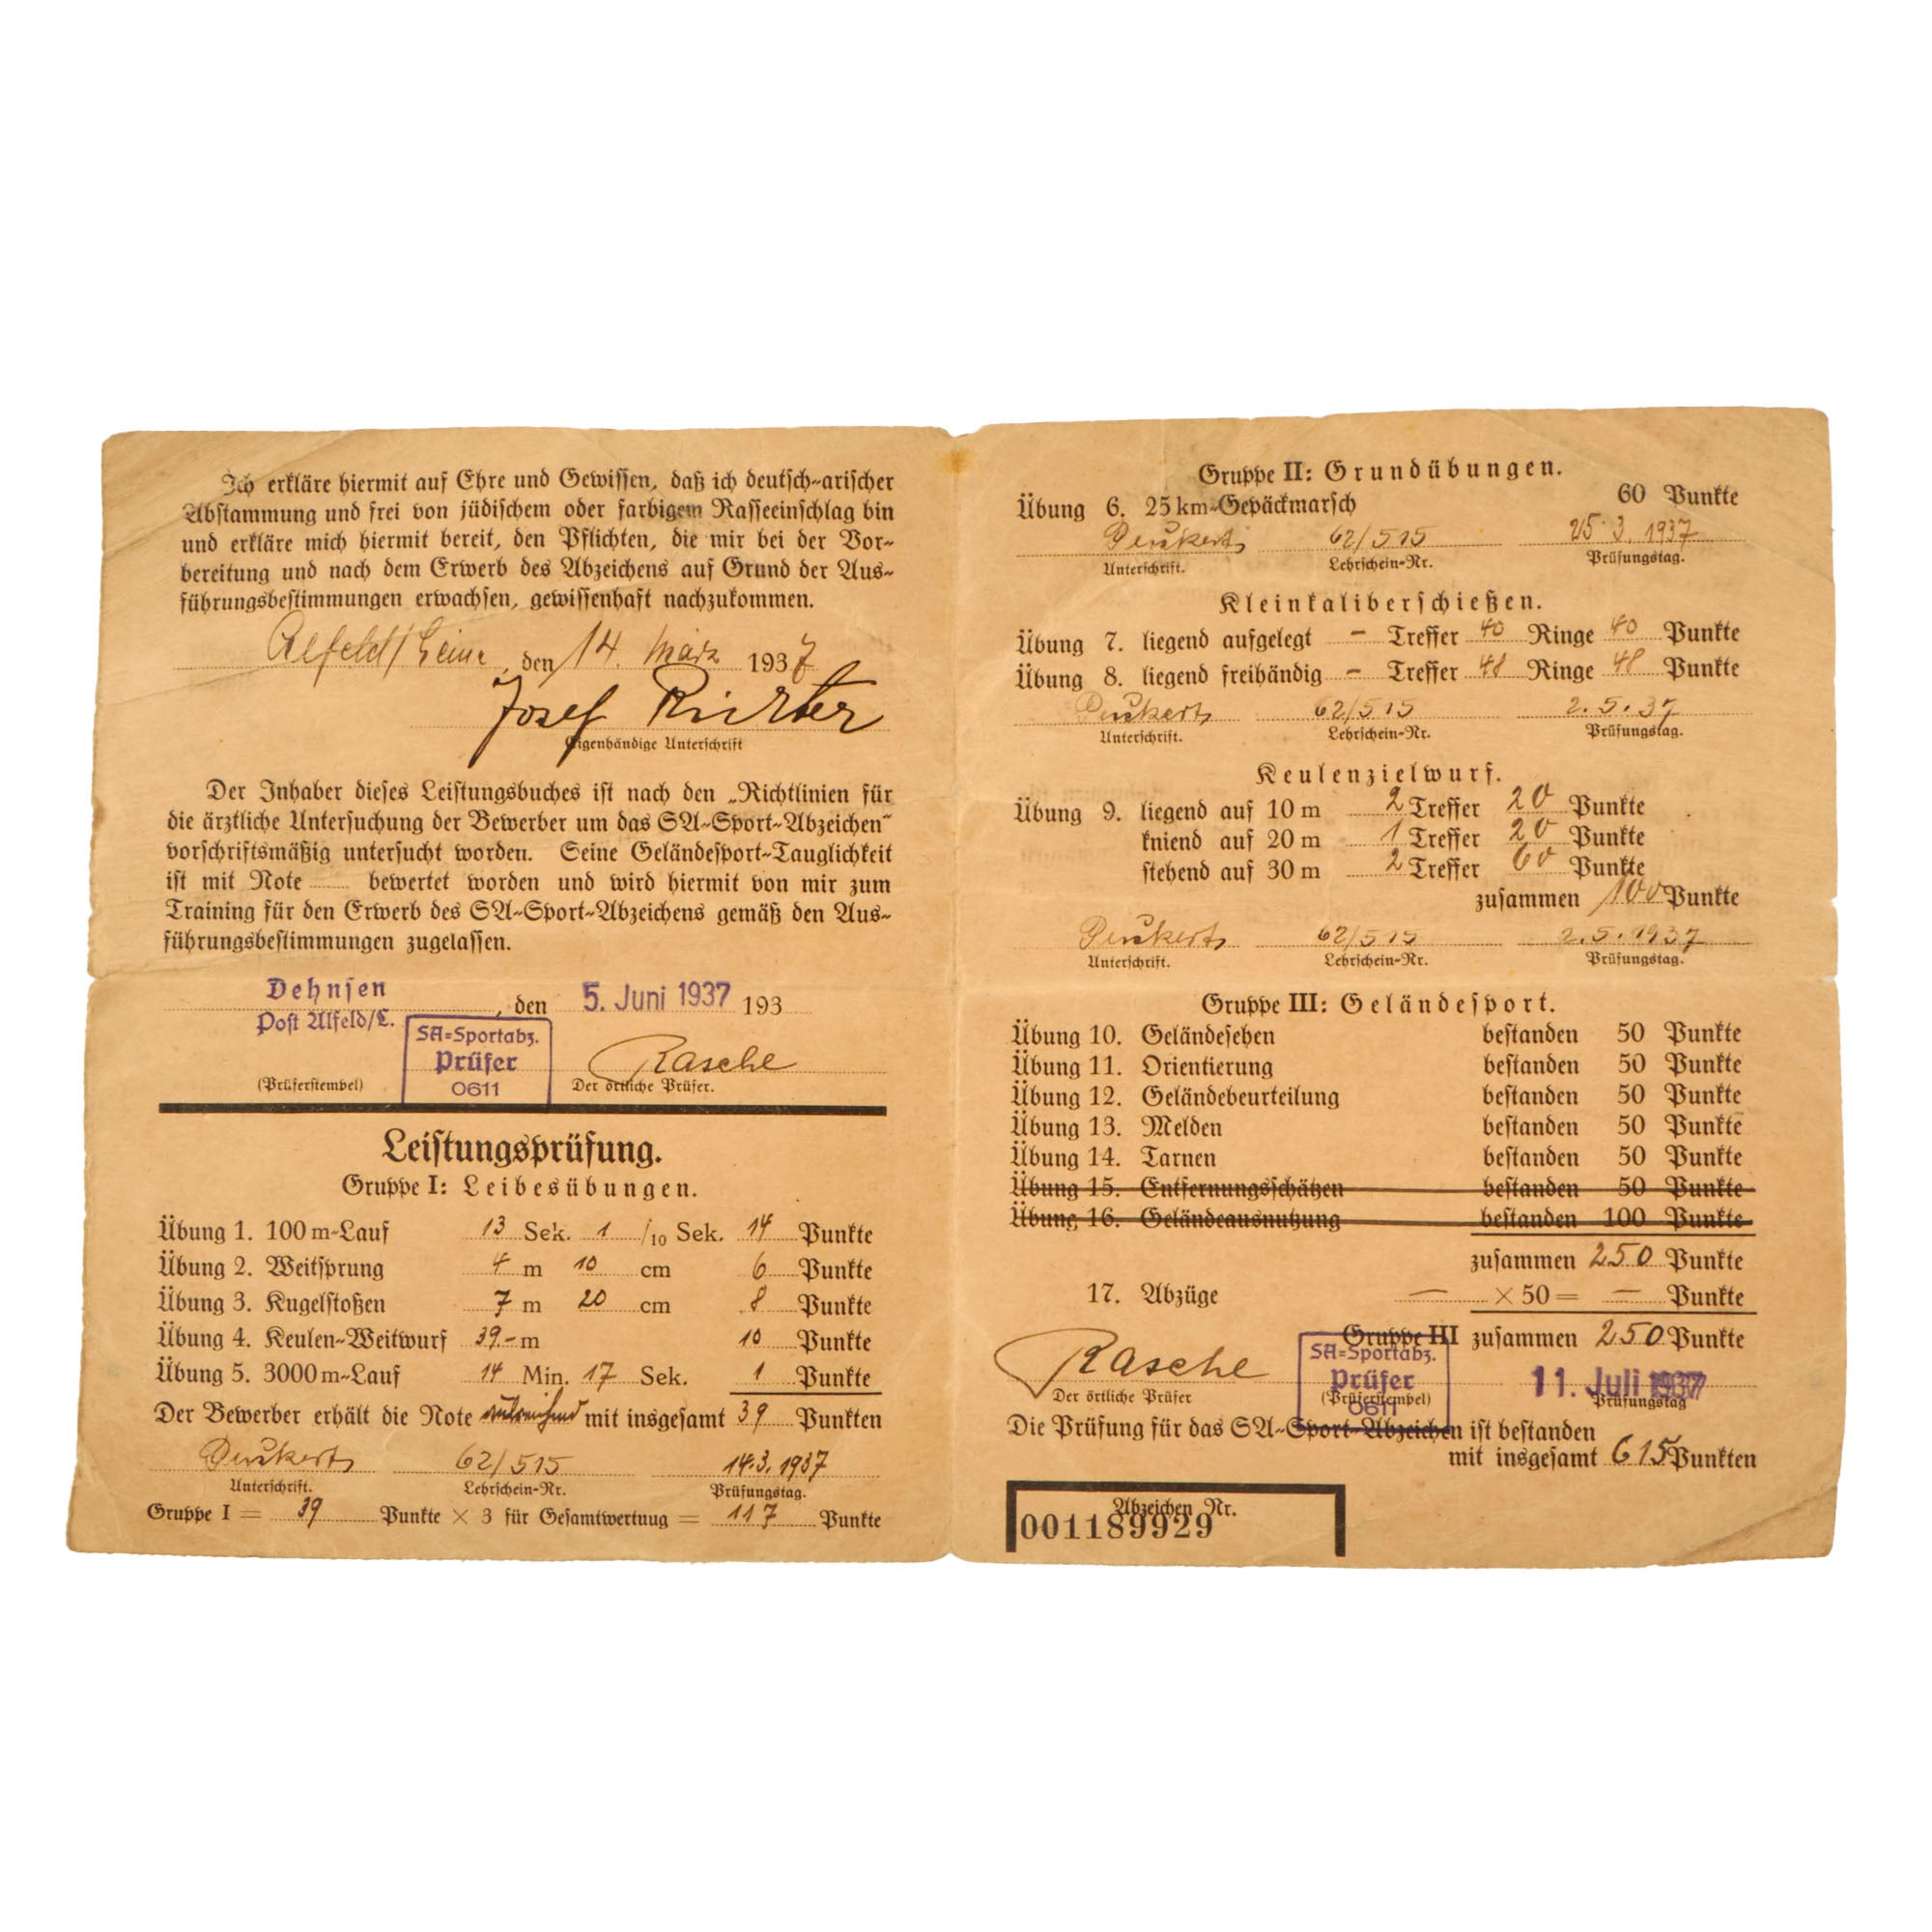 Ich erkläre hiermit auf Ehre und Gewissen, daß ich deutsch-arischer
Abstammung und frei von jüdischem oder farbigem Rasseeinschlag bin
und erkläre mich hiermit bereit, den Pflichten, die mir bei der Vor-
bereitung und nach dem Erwerb des Abzeichens auf Grund der Aus-
führungsbestimmungen erwachsen, gewissenhaft nachzukommen.
Alfeld/Leine, den 14. März 1937
Josef Richter
Eigenhändige Unterschrift
Der Inhaber dieses Leistungsbuches ist nach den „Richtlinien für
die ärztliche Untersuchung der Bewerber um das SA-Sport-Abzeichen“
vorschriftsmäßig untersucht worden. Seine Geländesport-Tauglichkeit
ist mit Note ...... bewertet worden und wird hiermit von mir zum
Training für den Erwerb des SA-Sport-Abzeichens gemäß den Aus-
führungsbestimmungen zugelassen.
Dehnsen, den 5. Juni 1937 193
Post Alfeld/L.
SA=Sportabz.
Prüfer
0611
Rasche
(Prüferstempel) Der örtliche Prüfer.
Leistungsprüfung.
Gruppe I: Leibesübungen.
Übung 1. 100 m-Lauf 13 Sek. 1 /10 Sek. 14 Punkte
Übung 2. Weitsprung 4 m 10 cm 6 Punkte
Übung 3. Kugelstoßen 7 m 20 cm 8 Punkte
Übung 4. Keulen-Weitwurf 39.- m 10 Punkte
Übung 5. 3000 m-Lauf 14 Min. 17 Sek. 1 Punkte
Der Bewerber erhält die Note mit insgesamt 39 Punkten
62/515 14.3.1937
Unterschrift. Lehrschein-Nr. Prüfungstag.
Gruppe I = 39 Punkte × 3 für Gesamtwertuug = 117 Punkte
Gruppe II: Grundübungen.
Übung 6. 25 km-Gepäckmarsch 60 Punkte
62/515 25.3.1937
Unterschrift. Lehrschein-Nr. Prüfungstag.
Kleinkaliberschießen.
Übung 7. liegend aufgelegt - Treffer 40 Ringe 40 Punkte
Übung 8. liegend freihändig - Treffer 48 Ringe 48 Punkte
62/515 2.5.37
Unterschrift. Lehrschein-Nr. Prüfungstag.
Keulenzielwurf.
Übung 9. liegend auf 10 m 2 Treffer 20 Punkte
kniend auf 20 m 1 Treffer 20 Punkte
stehend auf 30 m 2 Treffer 60 Punkte
zusammen 100 Punkte
62/515 2.5.1937
Unterschrift. Lehrschein-Nr. Prüfungstag.
Gruppe III: Geländesport.
Übung 10. Geländesehen bestanden 50 Punkte
Übung 11. Orientierung bestanden 50 Punkte
Übung 12. Geländebeurteilung bestanden 50 Punkte
Übung 13. Melden bestanden 50 Punkte
Übung 14. Tarnen bestanden 50 Punkte
Übung 15. Entfernungsschätzen bestanden 50 Punkte
Übung 16. Geländeausnutzung bestanden 100 Punkte
zusammen 250 Punkte
17. Abzüge — × 50 = — Punkte
Gruppe III zusammen 250 Punkte
Rasche
SA=Sportabz.
Prüfer
0611
11. Juli 1937
Der örtliche Prüfer (Prüferstempel) Prüfungstag
Die Prüfung für das SA-Sport-Abzeichen ist bestanden
mit insgesamt 615 Punkten
Abzeichen Nr.
001189929